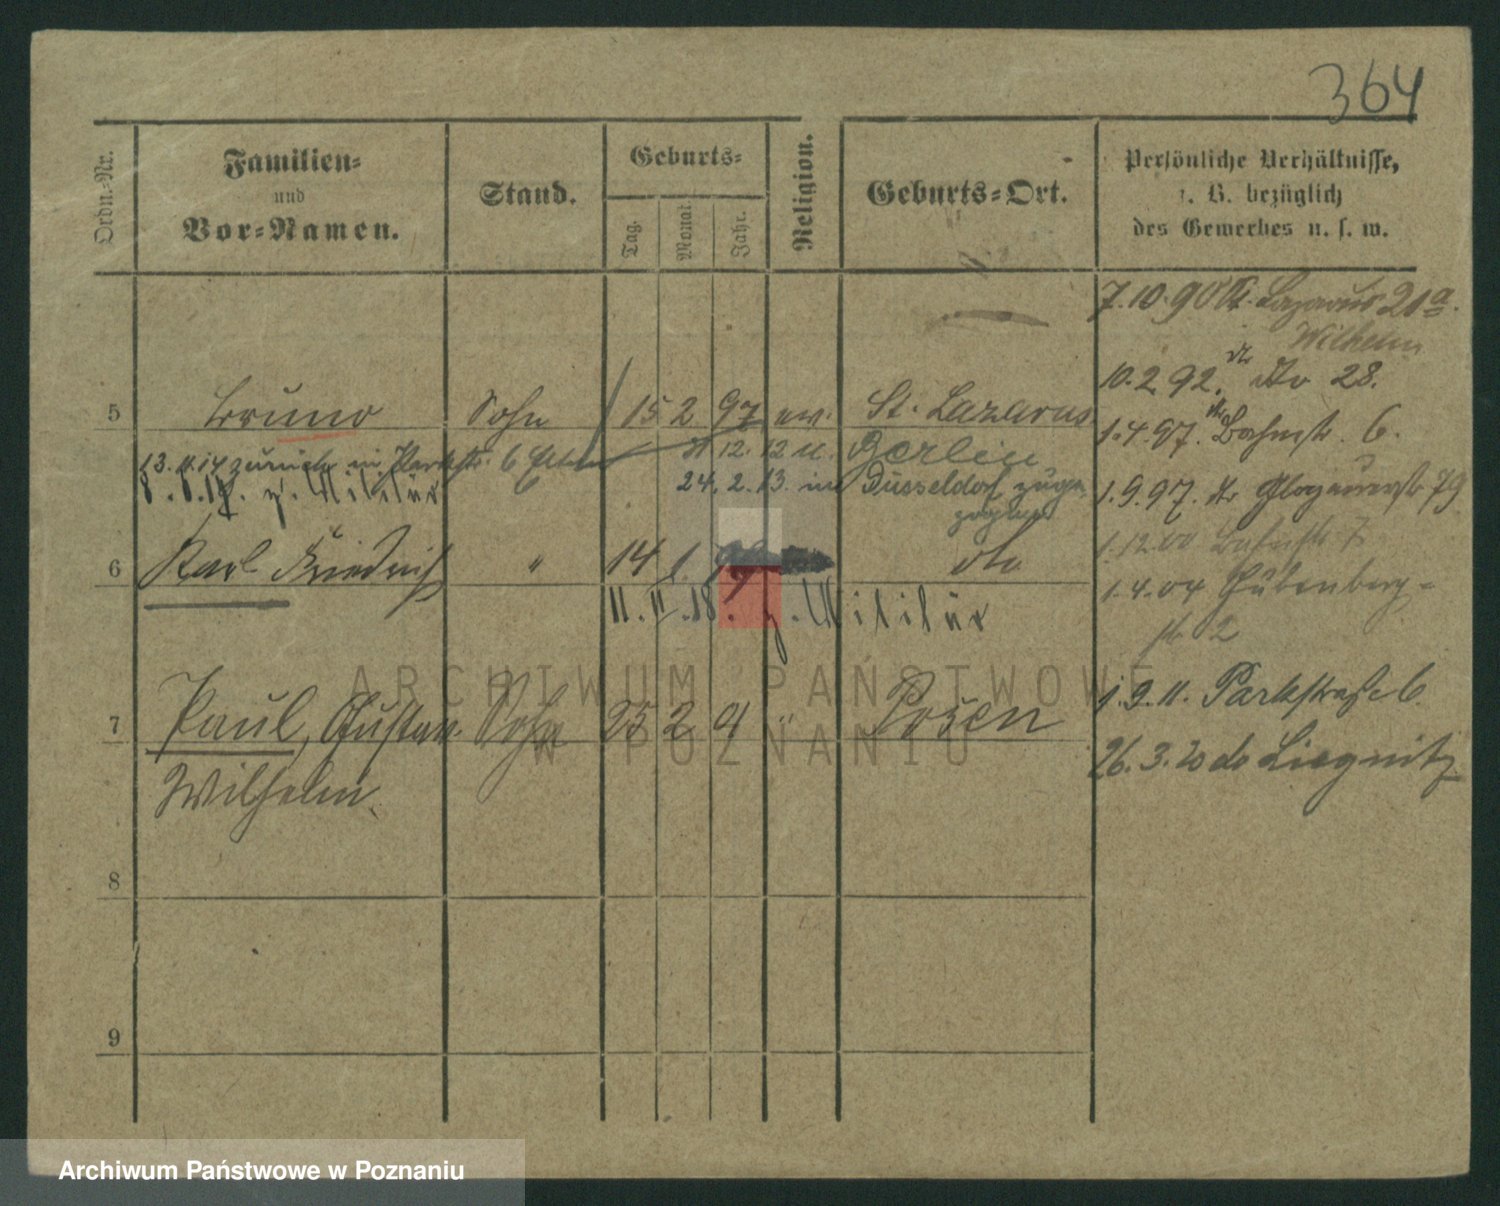 364
Ordn.-Nr.
Familien-
und
Vor-Namen.
Stand.
Geburts-
Tag.
Monat
Jahr.
Religion.
Geburts-Ort.
Persönliche Verhältnisse,
z. B. bezüglich
des Gewerbes u. s. w.
7.10.90 St. Lazarus 21a
Wilhelm
10.2.92. dto 28.
5 Bruno Sohn 15 2 97 ev. St. Lazarus
1.4.97. Bahnstr. 6.
12. 12 n. Berlin
13. 4. 14 zurück in Parkstr. 6
24. 2. 13. in Düsseldorf zuge-
zogen
z. Militär
1.9.97. Glogauerstr 79
1.12.00 Bahnstr 7
6 Karl Friedrich " 14 1. 99 dto
11. 11. 18. z. Militär
1.4.04 Hübenberg-
str. 2
ARCHIWUM PAŃSTWOWE
W POZNANIU
1.9.11. Parkstraße 6.
7 Paul, Gustav Sohn 25 2 " Posen
Wilhelm
26. 3. 20 Liegnitz
8
9
Archiwum Państwowe w Poznaniu